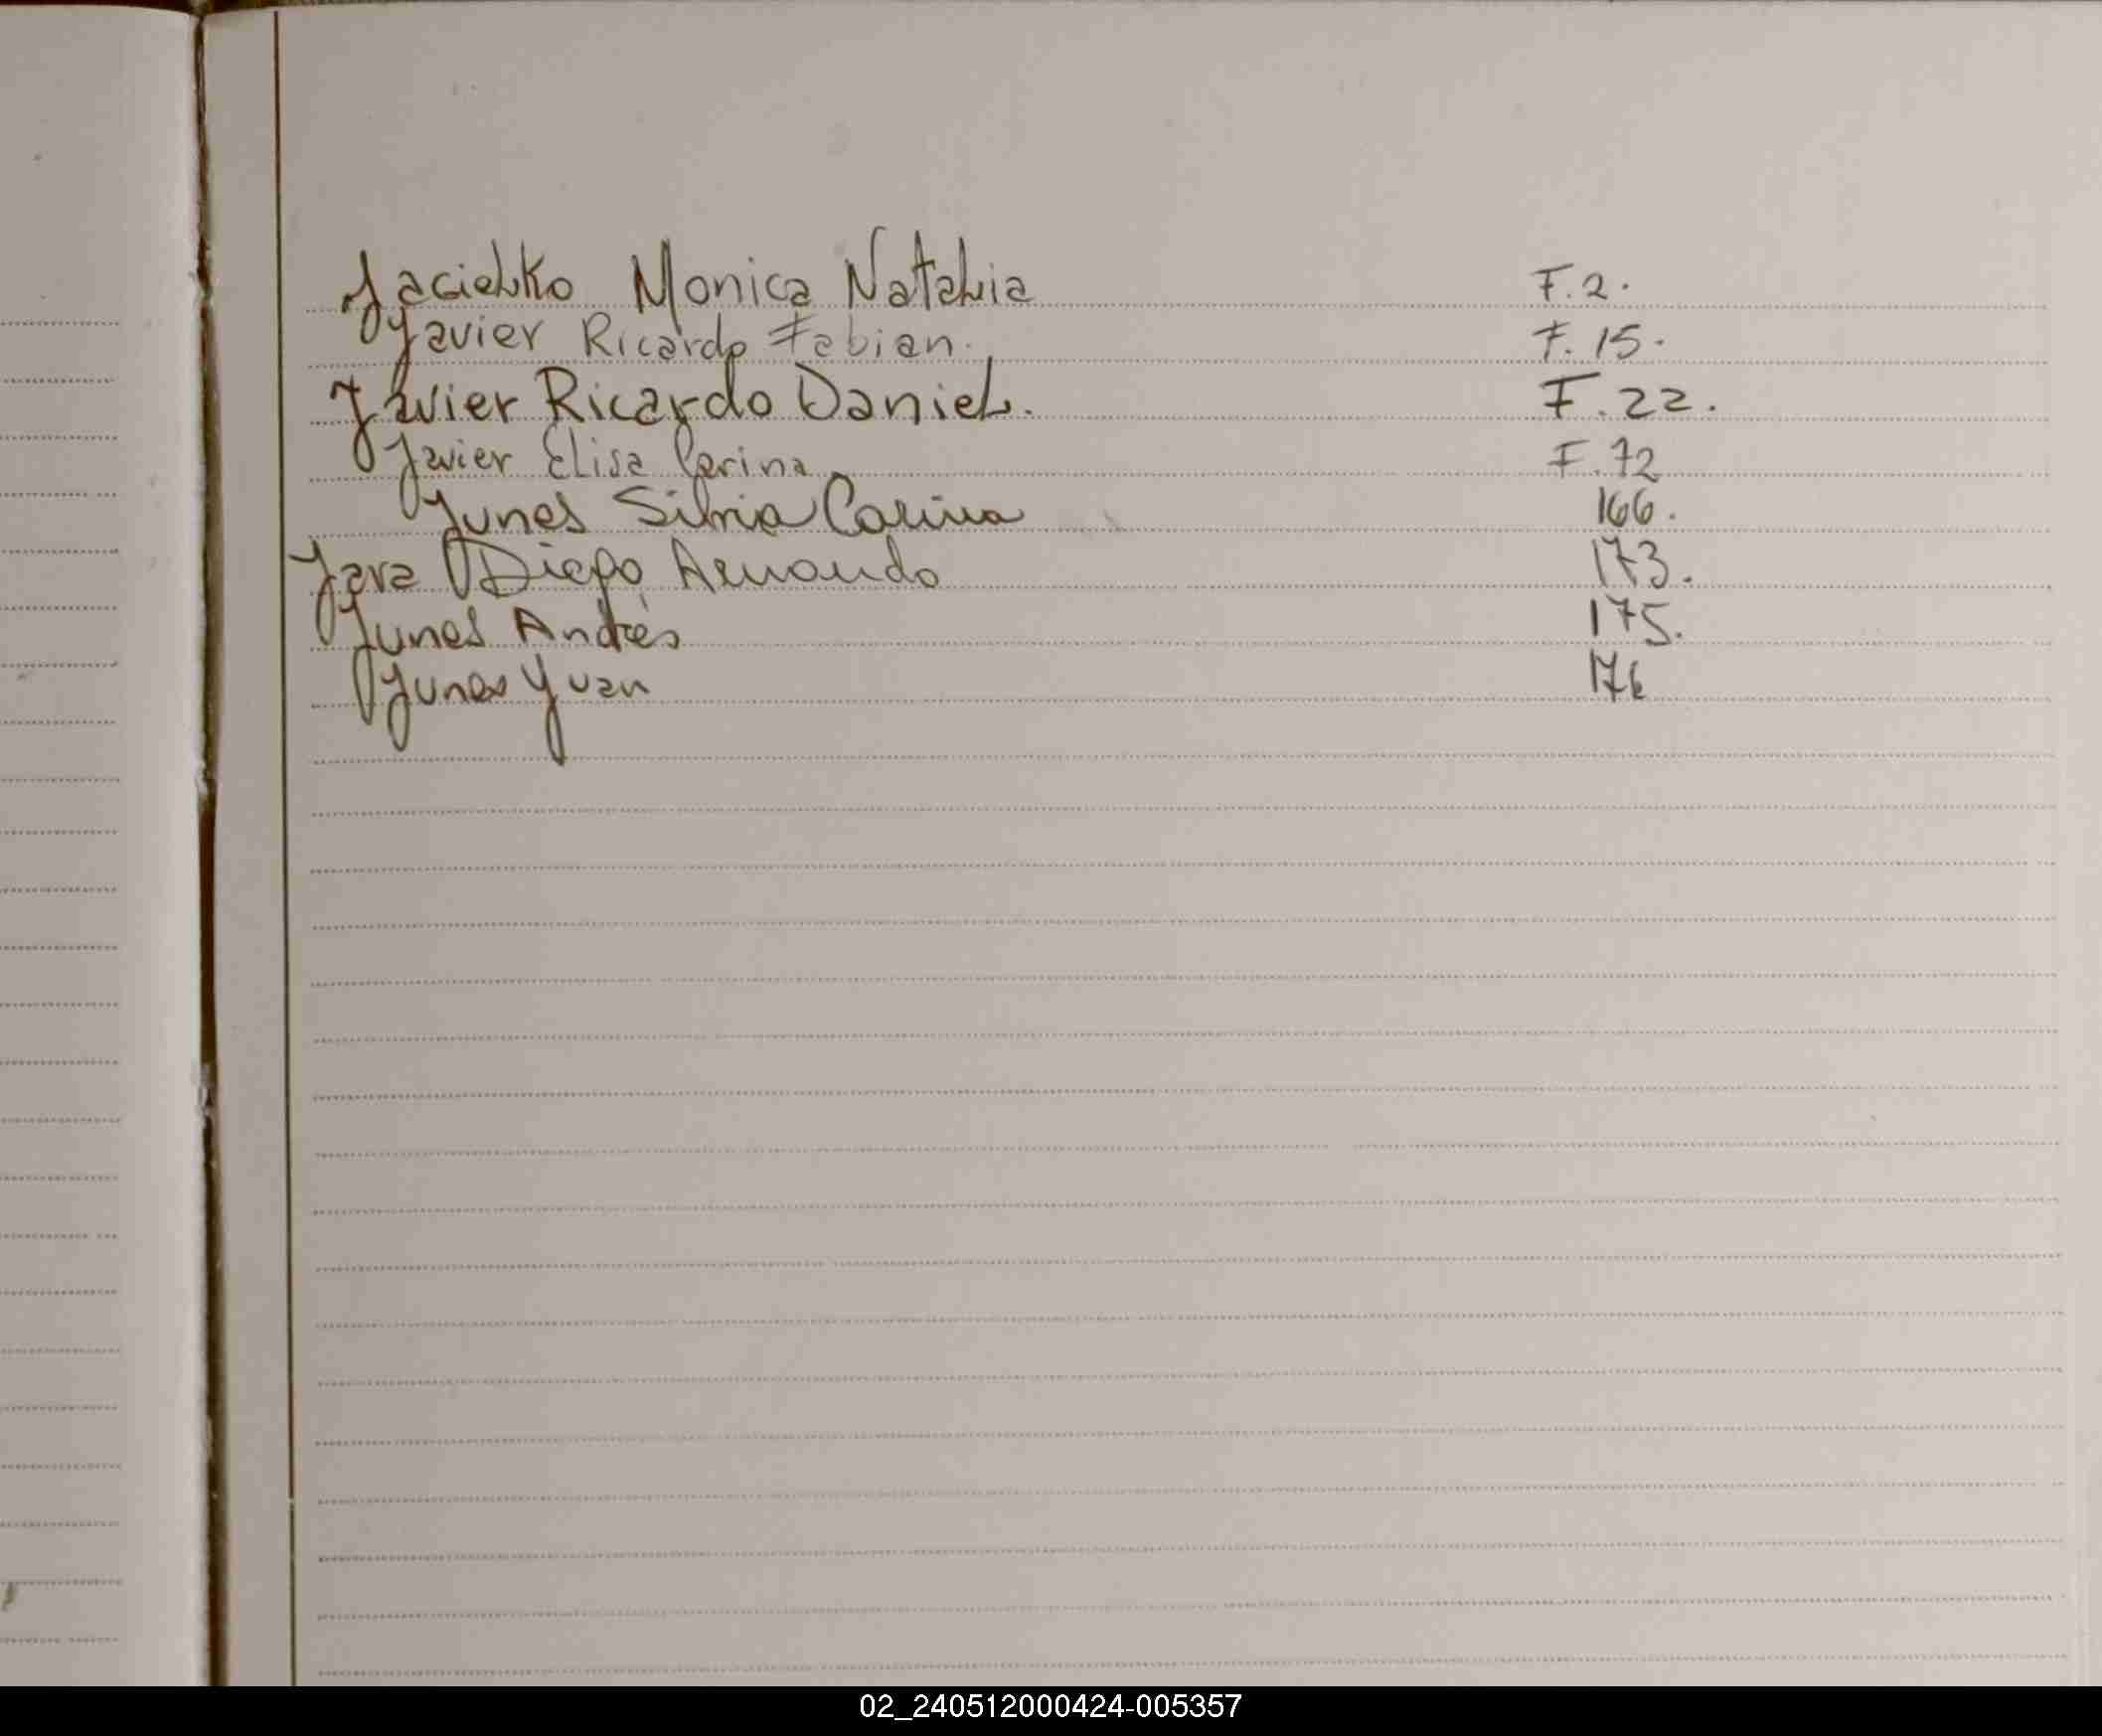 Jacielko Monica Natalia F.2.
Javier Ricardo Fabian. F.15.
Javier Ricardo Daniel. F.22.
Javier Elisa Carina F.72
Junes Silvia Carina 166.
Jara Diego Armando 173.
Junes Andrés 175.
Junes Yuan 176
02_240512000424-005357